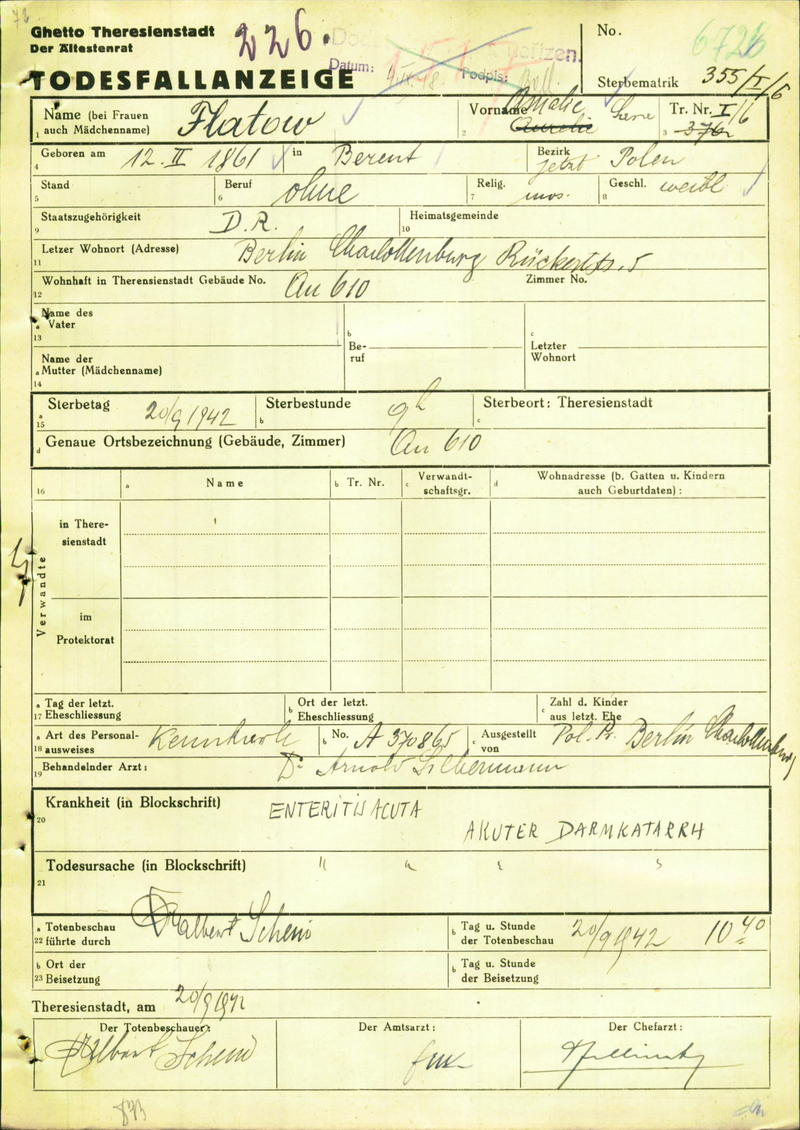 Ghetto Theresienstadt
Der Ältestenrat
226.
Datum:
Podpis:
No.
6726
TODESFALLANZEIGE
Sterbematrik 355/I/6
Name (bei Frauen
1 auch Mädchenname) Flatow
Vorname Amalie
2 Aurelie Sara
Tr. Nr. I/6
3 376
Geboren am 12. II 1861 in Berent Bezirk jetzt Polen
4
Stand Beruf ohne Relig. mos. Geschl. weibl
5 6 7 8
Staatszugehörigkeit D.R. Heimatsgemeinde
9 10
Letzer Wohnort (Adresse) Berlin Charlottenburg Rückertstr. 5
11
Wohnhaft in Therensienstadt Gebäude No. Qu 610 Zimmer No.
12
Name des
a Vater
13
b
Be-
ruf
c
Letzter
Wohnort
Name der
a Mutter (Mädchenname)
14
Sterbetag 20/9 1942 Sterbestunde 9h Sterbeort: Theresienstadt
a
15 b c
d Genaue Ortsbezeichnung (Gebäude, Zimmer) Qu 610
16 a Name b Tr. Nr. c Verwandt-
schaftsgr. d Wohnadresse (b. Gatten u. Kindern
auch Geburtdaten) :
Verwandte
in There-
sienstadt
im
Protektorat
a Tag der letzt.
17 Eheschliessung
b Ort der letzt.
Eheschliessung
c Zahl d. Kinder
aus letzt. Ehe
a Art des Personal-
18 ausweises Kennkarte
b No. A 370865
c Ausgestellt
von Pol. Pr. Berlin Charlottenburg
Behandelnder Arzt: Dr Arnold Silbermann
19
Krankheit (in Blockschrift) ENTERITIS ACUTA
20
AKUTER DARMKATARRH
Todesursache (in Blockschrift)
21
a Totenbeschau
22 führte durch Dr Albert Schein
b Tag u. Stunde
der Totenbeschau 20/9 1942 10 40
b Ort der
23 Beisetzung
b Tag u. Stunde
der Beisetzung
Theresienstadt, am 20/9 1942
Der Totenbeschauer:
Dr Albert Schein
Der Amtsarzt:
Der Chefarzt: